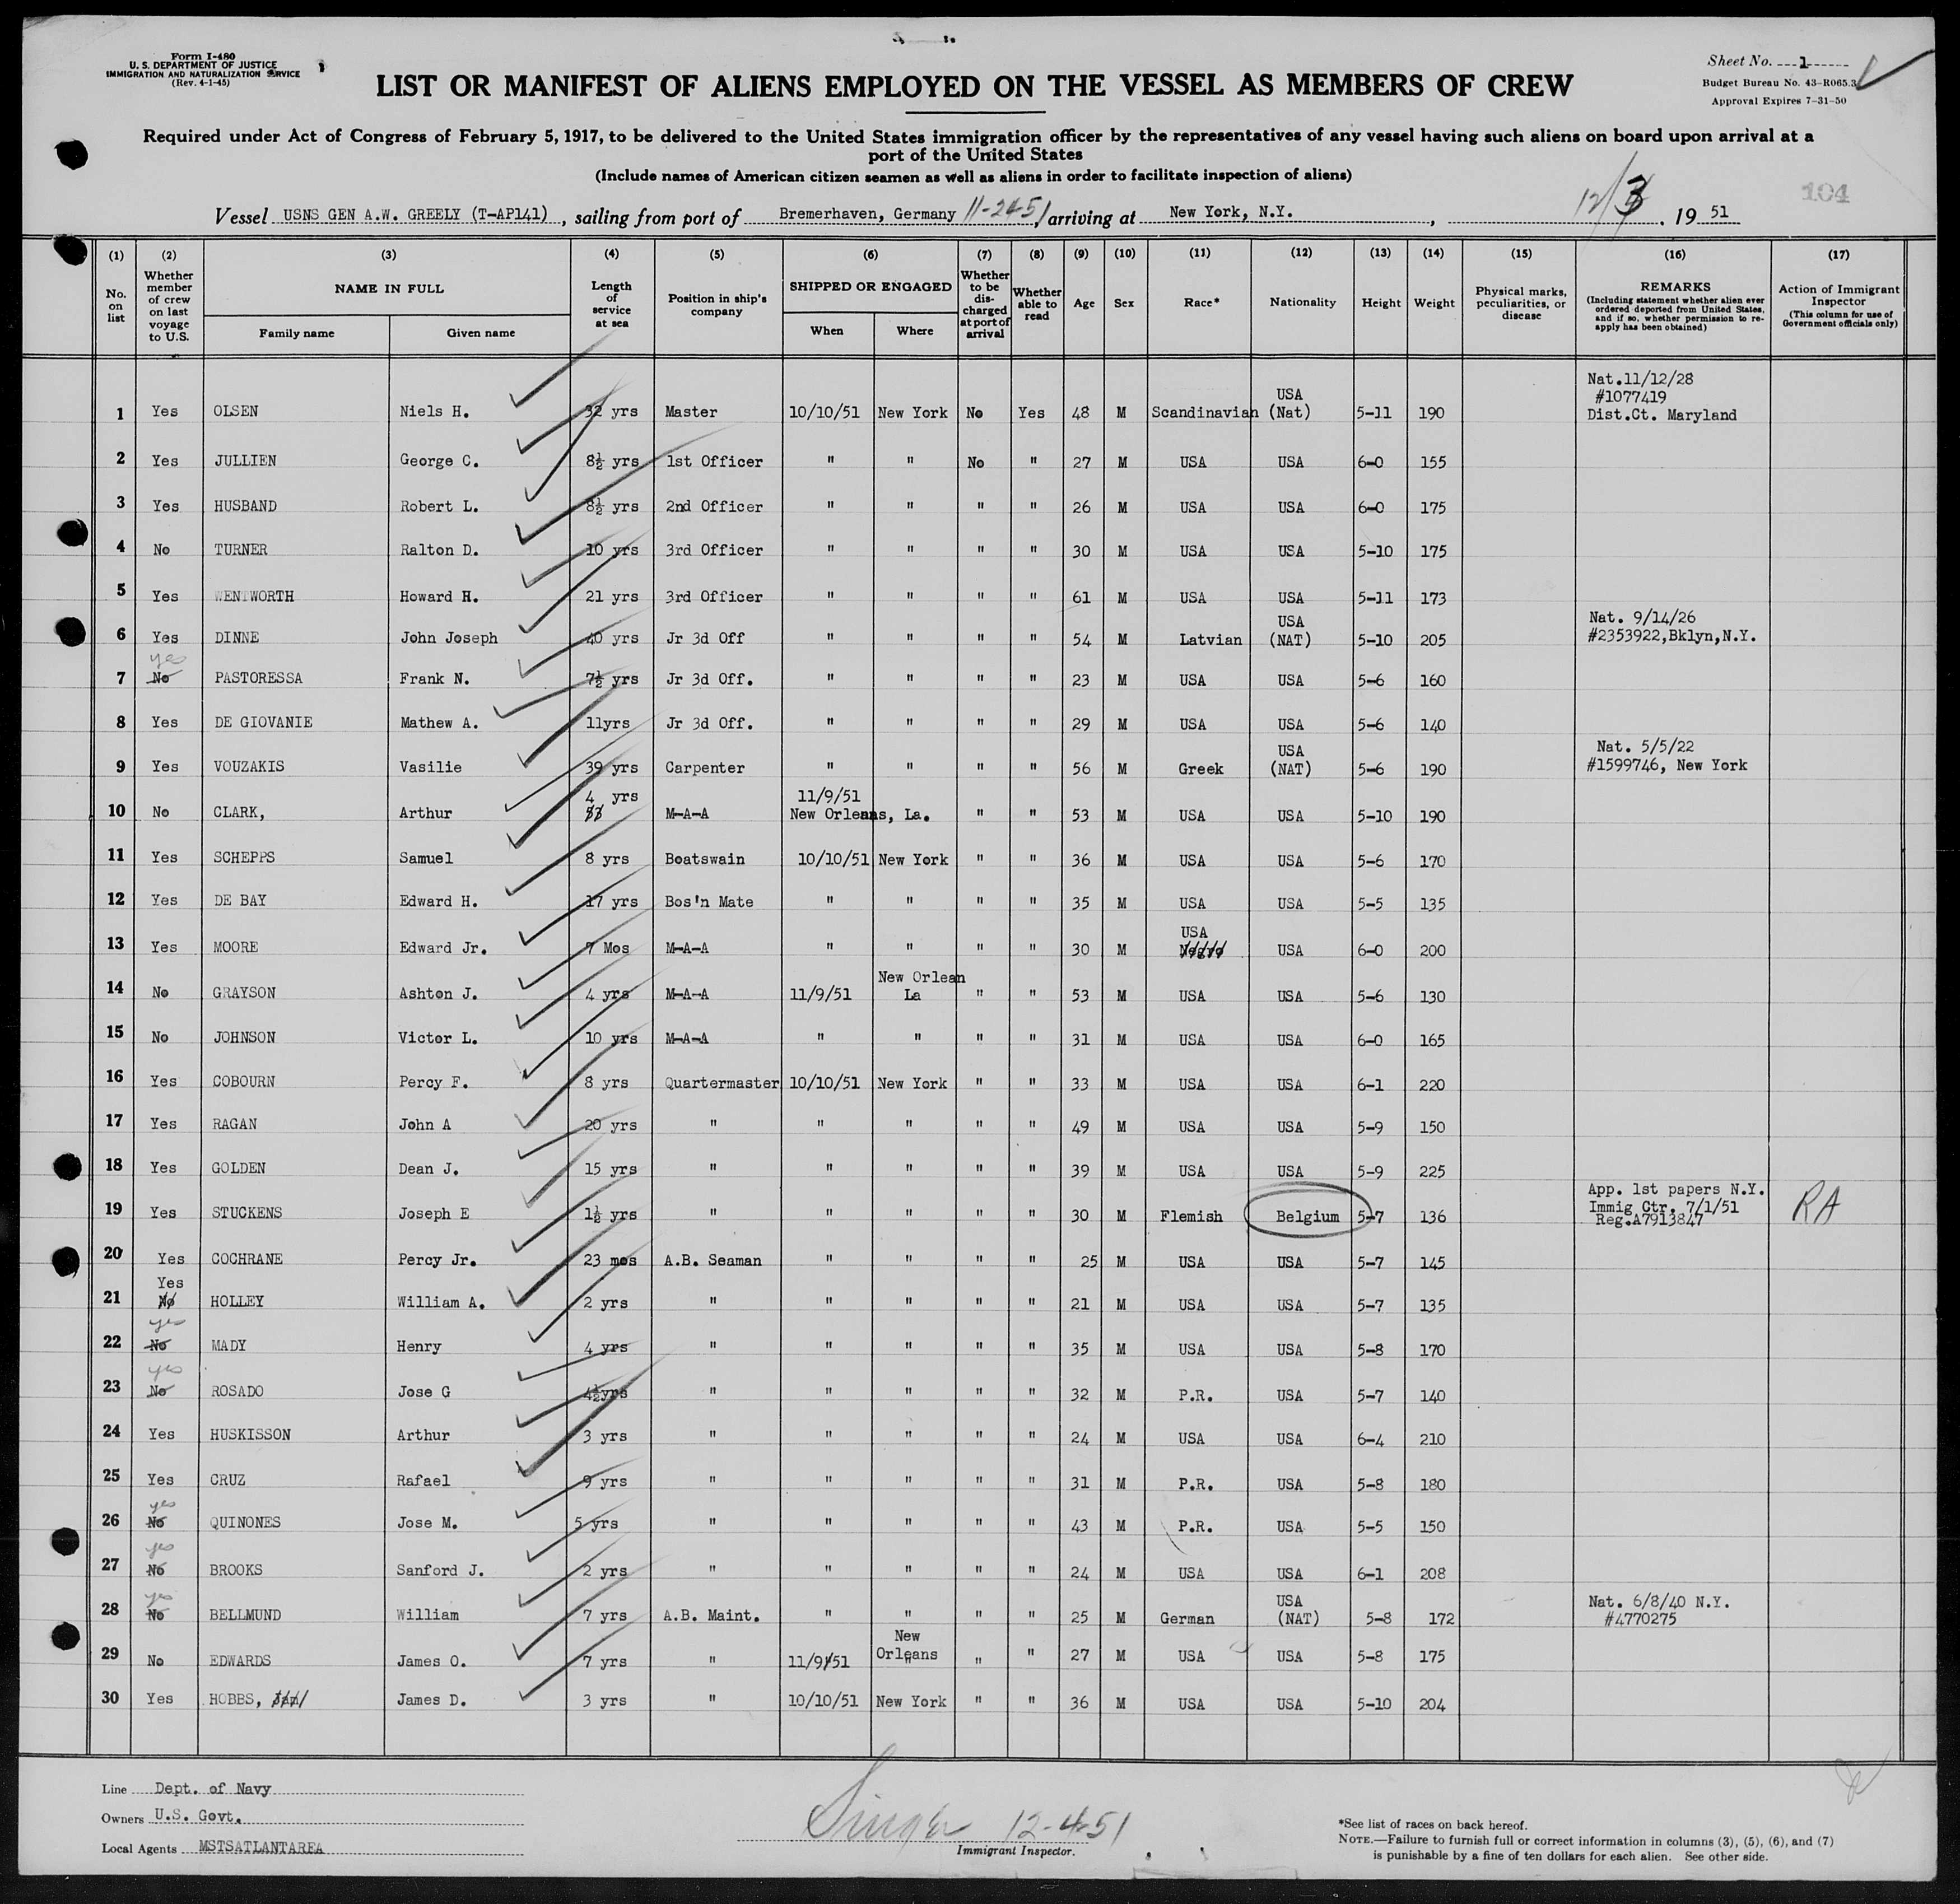 Form I-480
U. S. DEPARTMENT OF JUSTICE
IMMIGRATION AND NATURALIZATION SERVICE
(Rev. 4-1-45)
Sheet No. 1
Budget Bureau No. 43-R065.3
Approval Expires 7-31-50
LIST OR MANIFEST OF ALIENS EMPLOYED ON THE VESSEL AS MEMBERS OF CREW
Required under Act of Congress of February 5, 1917, to be delivered to the United States immigration officer by the representatives of any vessel having such aliens on board upon arrival at a
port of the United States
(Include names of American citizen seamen as well as aliens in order to facilitate inspection of aliens)
104
Vessel USNS GEN A.W. GREELY (T-AP141), sailing from port of Bremerhaven, Germany 11-24-51, arriving at New York, N.Y., 12/3, 19 51
(1) (2) (3) (4) (5) (6) (7) (8) (9) (10) (11) (12) (13) (14) (15) (16) (17)
No. on list
Whether member of crew on last voyage to U.S.
NAME IN FULL
Family name Given name
Length of service at sea
Position in ship's company
SHIPPED OR ENGAGED
When Where
Whether to be discharged at port of arrival
Whether able to read
Age Sex Race* Nationality Height Weight
Physical marks, peculiarities, or disease
REMARKS
(Including statement whether alien ever ordered deported from United States, and if so, whether permission to re-apply has been obtained)
Action of Immigrant Inspector
(This column for use of Government officials only)
1 Yes OLSEN Niels H. 32 yrs Master 10/10/51 New York No Yes 48 M Scandinavian USA (Nat) 5-11 190 Nat.11/12/28 #1077419 Dist.Ct. Maryland
2 Yes JULLIEN George C. 8½ yrs 1st Officer " " No " 27 M USA USA 6-0 155
3 Yes HUSBAND Robert L. 8½ yrs 2nd Officer " " " " 26 M USA USA 6-0 175
4 No TURNER Ralton D. 10 yrs 3rd Officer " " " " 30 M USA USA 5-10 175
5 Yes WENTWORTH Howard H. 21 yrs 3rd Officer " " " " 61 M USA USA 5-11 173
6 Yes DINNE John Joseph 40 yrs Jr 3d Off " " " " 54 M Latvian USA (NAT) 5-10 205 Nat. 9/14/26 #2353922,Bklyn,N.Y.
7 yes No PASTORESSA Frank N. 7½ yrs Jr 3d Off. " " " " 23 M USA USA 5-6 160
8 Yes DE GIOVANIE Mathew A. 11yrs Jr 3d Off. " " " " 29 M USA USA 5-6 140
9 Yes VOUZAKIS Vasilie 39 yrs Carpenter " " " " 56 M Greek USA (NAT) 5-6 190 Nat. 5/5/22 #1599746, New York
10 No CLARK, Arthur 4 yrs M-A-A 11/9/51 New Orleans, La. " " 53 M USA USA 5-10 190
11 Yes SCHEPPS Samuel 8 yrs Boatswain 10/10/51 New York " " 36 M USA USA 5-6 170
12 Yes DE BAY Edward H. 17 yrs Bos'n Mate " " " " 35 M USA USA 5-5 135
13 Yes MOORE Edward Jr. 7 Mos M-A-A " " " " 30 M USA Negro USA 6-0 200
14 No GRAYSON Ashton J. 4 yrs M-A-A 11/9/51 New Orlean La " " 53 M USA USA 5-6 130
15 No JOHNSON Victor L. 10 yrs M-A-A " " " " 31 M USA USA 6-0 165
16 Yes COBOURN Percy F. 8 yrs Quartermaster 10/10/51 New York " " 33 M USA USA 6-1 220
17 Yes RAGAN John A 20 yrs " " " " " 49 M USA USA 5-9 150
18 Yes GOLDEN Dean J. 15 yrs " " " " " 39 M USA USA 5-9 225
19 Yes STUCKENS Joseph E 1½ yrs " " " " " 30 M Flemish Belgium 5-7 136 App. 1st papers N.Y. Immig Ctr. 7/1/51 Reg.A7913847 RA
20 Yes COCHRANE Percy Jr. 23 mos A.B. Seaman " " " " 25 M USA USA 5-7 145
21 Yes No HOLLEY William A. 2 yrs " " " " " 21 M USA USA 5-7 135
22 yes No MADY Henry 4 yrs " " " " " 35 M USA USA 5-8 170
23 yes No ROSADO Jose G 4½yrs " " " " " 32 M P.R. USA 5-7 140
24 Yes HUSKISSON Arthur 3 yrs " " " " " 24 M USA USA 6-4 210
25 Yes CRUZ Rafael 9 yrs " " " " " 31 M P.R. USA 5-8 180
26 yes No QUINONES Jose M. 5 yrs " " " " " 43 M P.R. USA 5-5 150
27 yes No BROOKS Sanford J. 2 yrs " " " " " 24 M USA USA 6-1 208
28 yes No BELLMUND William 7 yrs A.B. Maint. " " " " 25 M German USA (NAT) 5-8 172 Nat. 6/8/40 N.Y. #4770275
29 No EDWARDS James O. 7 yrs " 11/9/51 New Orleans " " 27 M USA USA 5-8 175
30 Yes HOBBS, James D. 3 yrs " 10/10/51 New York " " 36 M USA USA 5-10 204
Line Dept. of Navy
Owners U.S. Govt.
Local Agents MSTSATLANTAREA
Singer 12-4-51
Immigrant Inspector.
*See list of races on back hereof.
NOTE.—Failure to furnish full or correct information in columns (3), (5), (6), and (7)
is punishable by a fine of ten dollars for each alien. See other side.